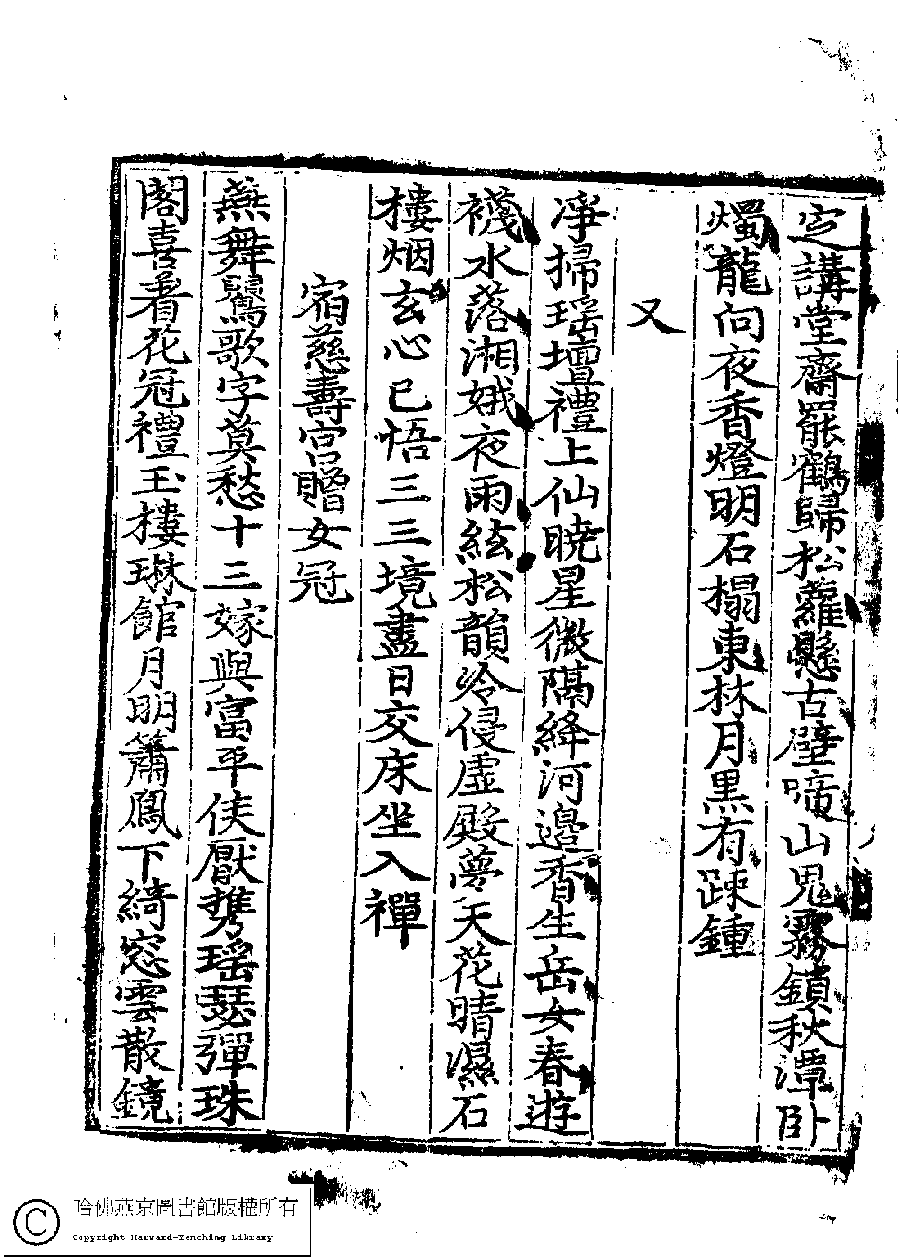 定講堂齋罷鶴歸松蘿懸古壁啼山鬼霧鎖秋潭臥
燭龍向夜香燈明石榻東林月黒有踈鍾
又
凈掃瑶壇禮上仙曉星微隔絳河邊香生岳女春遊
襪水落湘娥夜雨絃松韻冷侵虚殿夢天花晴濕石
樓烟玄心已悟三三境盡日交床坐入禪
宿慈壽宮贈女冠
燕舞鸎歌字莫愁十三嫁與富平侯厭携瑶瑟彈珠
閣喜着花冠禮玉樓琳館月明簫鳳下綺窓雲散鏡
哈佛燕京圖書館版權所有
Copyright Harvard-Yenching Library